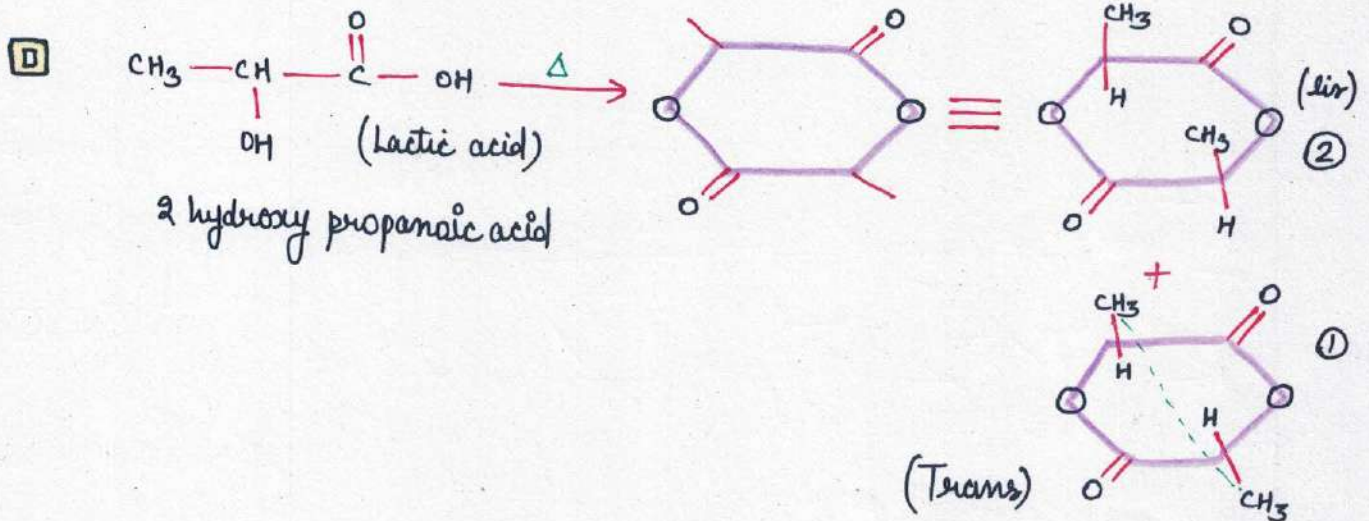 D
CH3 — CH — C — OH
O
OH
Δ
(Lactic acid)
2 hydroxy propanoic acid
O
O
O
O
CH3
H
O
O
O
O
CH3
H
(lis)
②
+
CH3
H
O
O
O
O
H
CH3
①
(Trans)